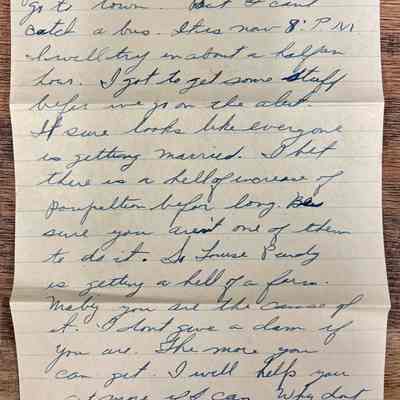 go to town. But I cant
catch a bus. It is now 8: P.M
I will try in about a half an
hour. I got to get some stuff
befor we go on the alert.
It sure looks like everyone
is getting married. I bet
there is a hell of increase of
poupeltion befor long. Be
sure you aren't one of them
to do it. So Louise Purdy
is getting a hell of a form.
Maby you are the cause of
it. I dont give a dam if
you are. The more you
can get. I will help you
get more if I can. Why dont